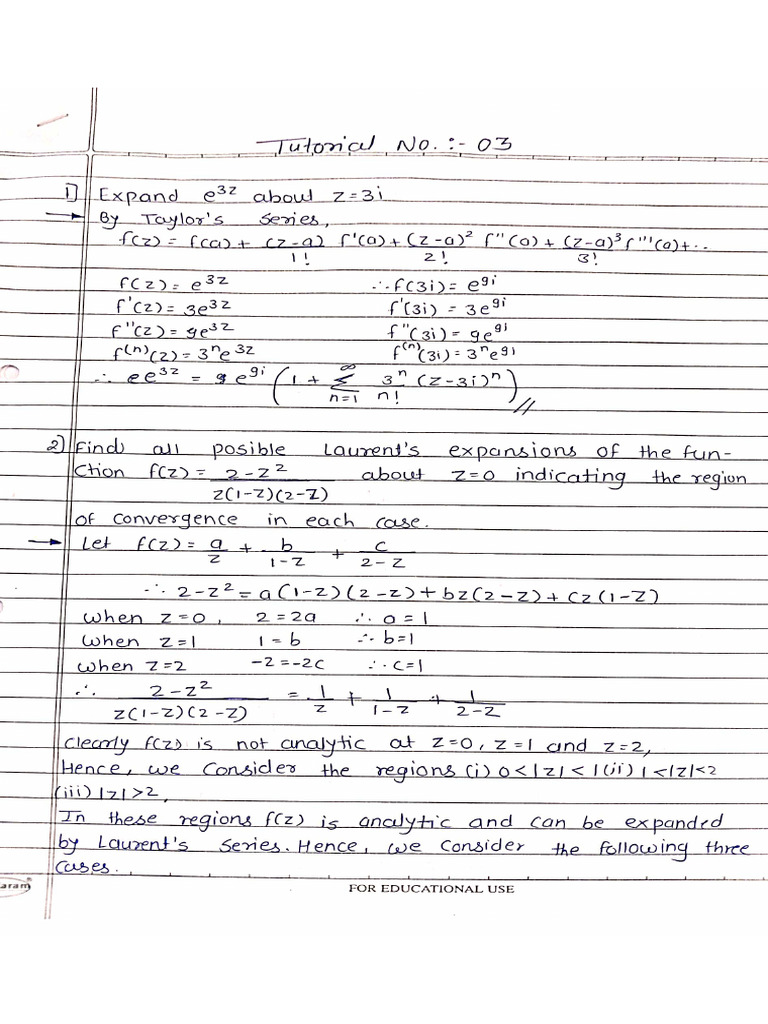 Tutorial No. :- 03
1] Expand e^3z about z=3i
→ By Taylor's series,
f(z) = f(a) + (z-a)/1! f'(a) + (z-a)²/2! f''(a) + (z-a)³/3! f'''(a) + ..
f(z) = e^3z ∴ f(3i) = e^9i
f'(z) = 3e^3z f'(3i) = 3e^9i
f''(z) = 9e^3z f''(3i) = 9e^9i
f^(n)(z) = 3^n e^3z f^(n)(3i) = 3^n e^9i
∴ ee^3z = 9 e^9i (1 + ∞Σn=1 3^n/n! (z-3i)^n) //
2) Find all posible Laurent's expansions of the fun-
ction f(z) = 2-z²/z(1-z)(2-z) about z=0 indicating the region
of convergence in each case.
→ Let f(z) = a/z + b/1-z + c/2-z
∴ 2-z² = a(1-z)(2-z) + bz(2-z) + cz(1-z)
when z=0, 2=2a ∴ a=1
when z=1 1=b ∴ b=1
when z=2 -2=-2c ∴ c=1
∴ 2-z²/z(1-z)(2-z) = 1/z + 1/1-z + 1/2-z
Clearly f(z) is not analytic at z=0, z=1 and z=2,
Hence, we consider the regions (i) 0<|z|<1 (ii) 1<|z|<2
(iii) |z|>2,
In these regions f(z) is analytic and can be expanded
by Laurent's series. Hence, we consider the following three
cases.
aram® FOR EDUCATIONAL USE